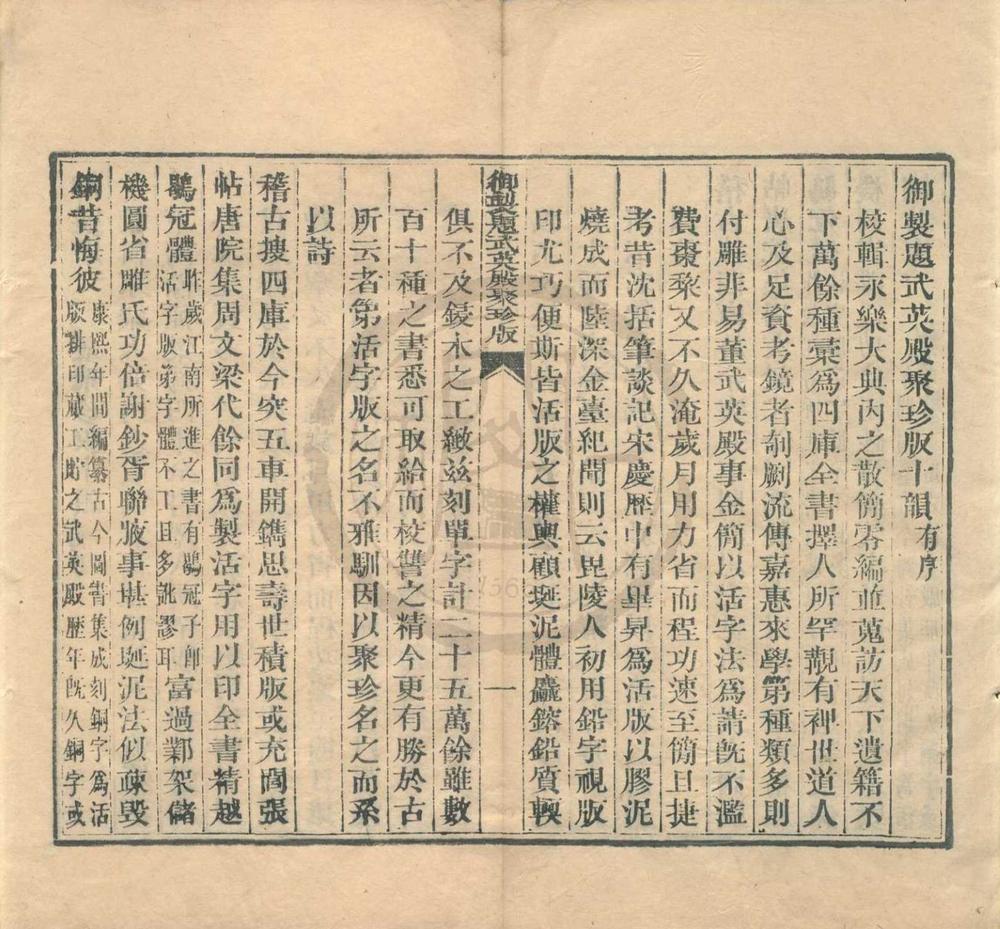 御製題武英殿聚珍版十韻有序
校輯永樂大典內之散簡零編並蒐訪天下遺籍不
下萬餘種彙為四庫全書擇人所罕覯有裨世道人
心及足資考鏡者剞劂流傳嘉惠來學第種類多則
付雕非易董武英殿事金簡以活字法為請既不濫
費棗棃又不久淹歲月用力省而程功速至簡且捷
考昔沈括筆談記宋慶歷中有畢昇為活版以膠泥
燒成而陸深金臺紀聞則云毘陵人初用鉛字視版
印尤巧便斯皆活版之權輿顧埏泥體麤鎔鉛質輭
俱不及鋟木之工緻茲刻單字計二十五萬餘雖數
百十種之書悉可取給而校讐之精今更有勝於古
所云者第活字版之名不雅馴因以聚珍名之而系
以詩
稽古搜四庫於今突五車開鐫思壽世積版或充閭張
帖唐院集周文梁代餘同為製活字用以印全書精越
鶡冠體昨歲江南所進之書有鶡冠子即
活字版第字體不工且多訛謬耳富過鄴架儲
機圓省雕氏功倍謝鈔胥聯腋事堪例埏泥法似疎毀
銅昔悔彼康熙年間編纂古今圖書集成刻銅字為活
版排印蕆工貯之武英殿歷年既久銅字或
御製題武英殿聚珍版
一